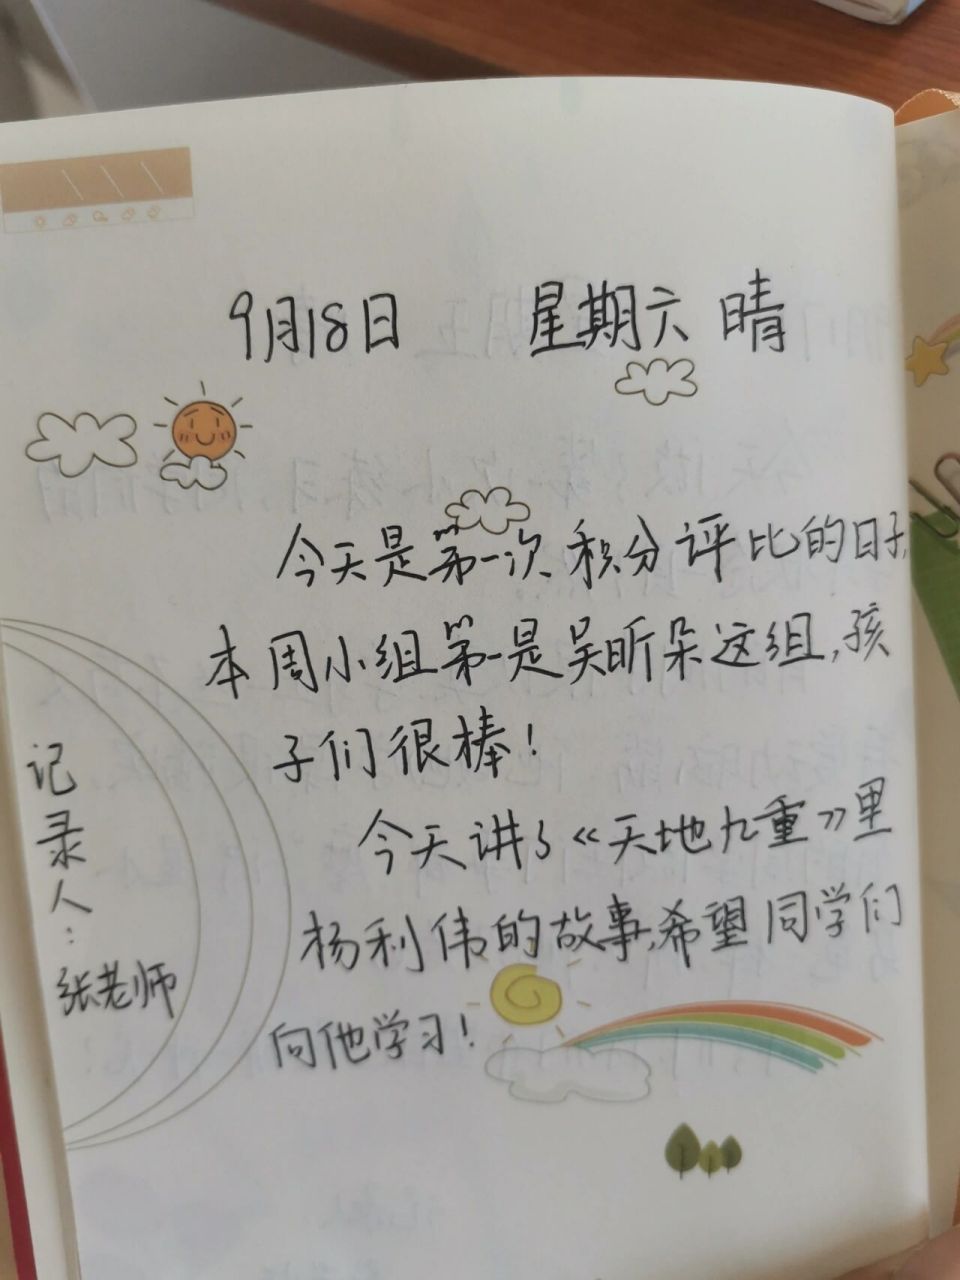 9月18日 星期六 晴
今天是第一次积分评比的日子,
本周小组第一是吴昕朵这组,孩
子们很棒!
今天讲了《天地九重》里
杨利伟的故事,希望同学们
向他学习!
记录人:
张老师